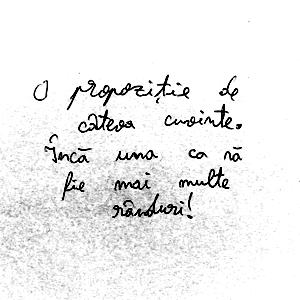 O propoziție de
câteva cuvinte.
Încă una ca să
fie mai multe
rânduri!